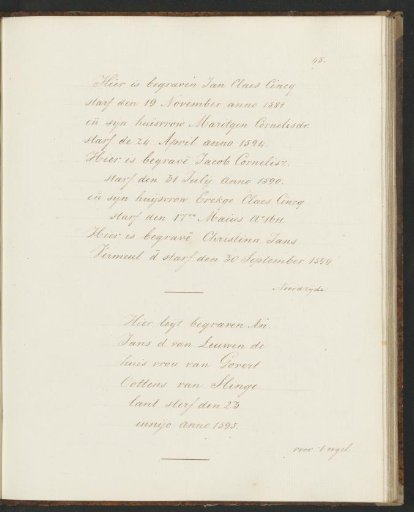 48.
Hier is begraven Jan Claes Cincq
starf den 19 November anno 1581
eñ syn huisvrow Maritgen Cornelisdr
starf de 24 April anno 1594.
Hier is begravē Jacob Cornelisz.
starf den 31 July Anno 1590.
eñ syn huijsvrow Claes Cincq
starf den 17en Maius Ao 1611
Hier is begravē Christina Jans
Vermeul d̄ starf den 30 September 1544
Noordzyde
Hier leyt begraven An
Jans d van Leuwen de
huis vrou van Govert
Cottens van Slinge
lant sterf den 23
iunijo anno 1595.
voor 't orgel.